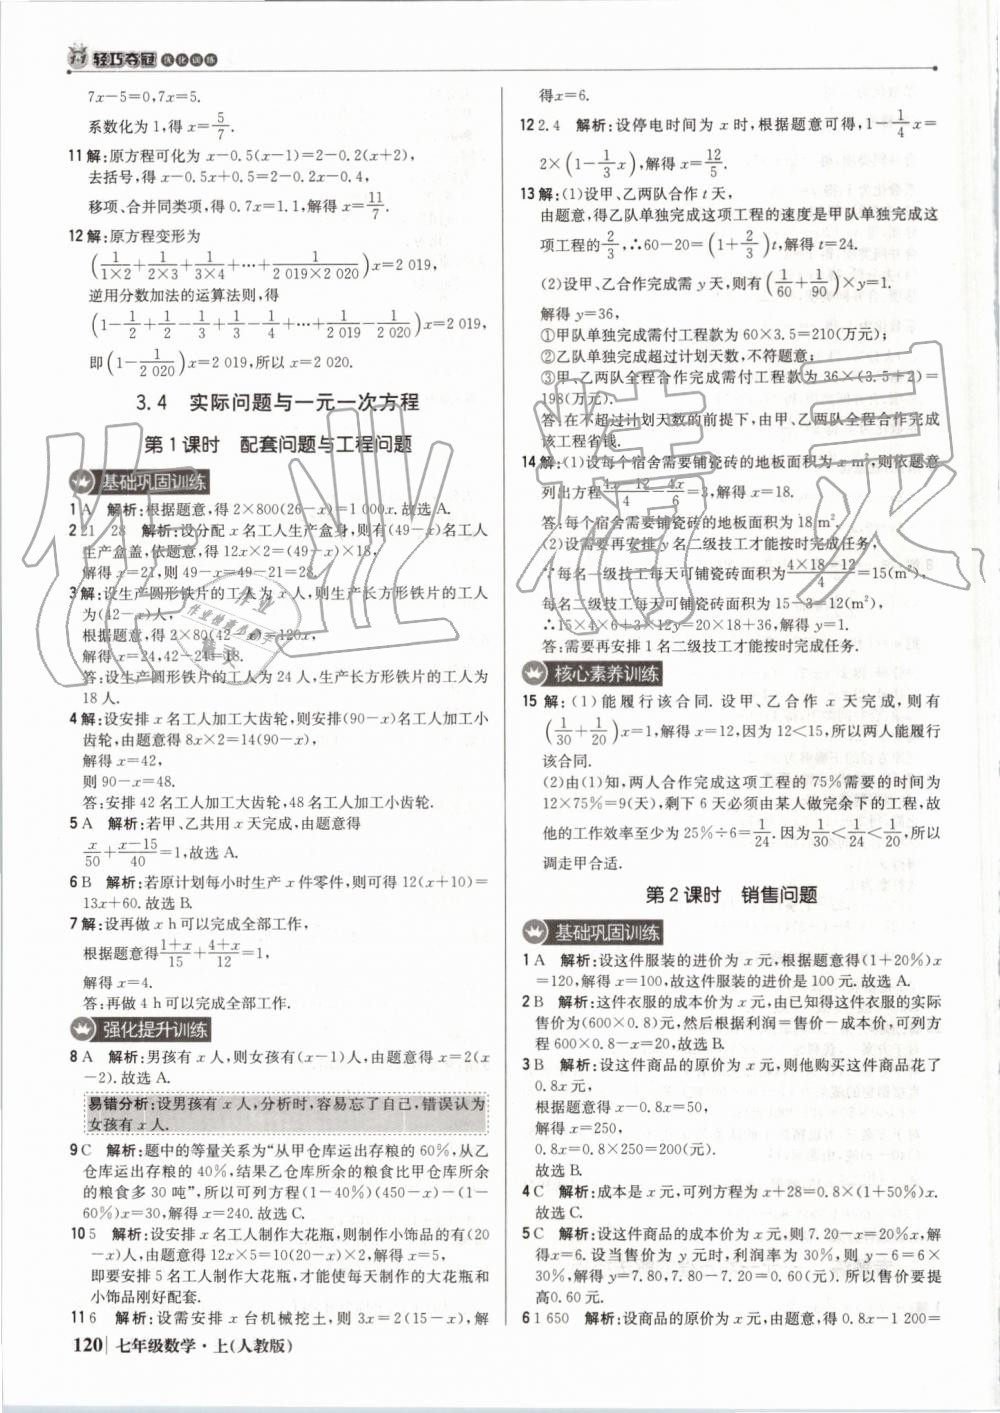 1+1 轻巧夺冠 优化训练
7x-5=0,7x=5.
系数化为1,得 x=5/7.
11 解:原方程可化为 x-0.5(x-1)=2-0.2(x+2),
去括号,得 x-0.5x+0.5=2-0.2x-0.4,
移项、合并同类项,得 0.7x=1.1,解得 x=11/7.
12 解:原方程变形为
(1/(1×2)+1/(2×3)+1/(3×4)+…+1/(2 019×2 020))x=2 019,
逆用分数加法的运算法则,得
(1-1/2+1/2-1/3+1/3-1/4+…+1/2 019-1/2 020)x=2 019,
即(1-1/2 020)x=2 019,所以 x=2 020.
3.4 实际问题与一元一次方程
第1课时 配套问题与工程问题
基础巩固训练
1 A 解析:根据题意,得 2×800(26-x)=1 000x.故选 A.
2 21 28 解析:设分配 x 名工人生产盒身,则有(49-x)名工人
生产盒盖,依题意,得 12x×2=(49-x)×18,
解得 x=21,则 49-x=49-21=28.
3 解:设生产圆形铁片的工人为 x 人,则生产长方形铁片的工人
为(42-x)人,
根据题意,得 2×80(42-x)=120x,
解得 x=24,42-24=18.
答:设生产圆形铁片的工人为 24 人,生产长方形铁片的工人为
18 人.
4 解:设安排 x 名工人加工大齿轮,则安排(90-x)名工人加工小
齿轮,由题意得 8x×2=14(90-x),
解得 x=42,
则 90-x=48.
答:安排 42 名工人加工大齿轮,48 名工人加工小齿轮.
5 A 解析:若甲、乙共用 x 天完成,由题意得
x/50+(x-15)/40=1,故选 A.
6 B 解析:若原计划每小时生产 x 件零件,则可得 12(x+10)=
13x+60.故选 B.
7 解:设再做 x h 可以完成全部工作,
根据题意得(1+x)/15+(4+x)/12=1,
解得 x=4.
答:再做 4 h 可以完成全部工作.
强化提升训练
8 A 解析:男孩有 x 人,则女孩有(x-1)人,由题意得 x=2(x
-2).故选 A.
易错分析:设男孩有 x 人,分析时,容易忘了自己,错误认为
女孩有 x 人.
9 C 解析:题中的等量关系为“从甲仓库运出存粮的 60%,从乙
仓库运出存粮的 40%,结果乙仓库所余的粮食比甲仓库所余
的粮食多 30 吨”,所以可列方程(1-40%)(450-x)-(1-
60%)x=30,解得 x=240.故选 C.
10 5 解析:设安排 x 名工人制作大花瓶,则制作小饰品的有(20
-x)人,由题意得 12x×5=10(20-x)×2,解得 x=5,
即要安排 5 名工人制作大花瓶,才能使每天制作的大花瓶和
小饰品刚好配套.
11 6 解析:设需安排 x 台机械挖土,则 3x=2(15-x),解
得x=6.
12 2.4 解析:设停电时间为 x 时,根据题意可得,1-1/4x=
2×(1-1/3x),解得 x=12/5.
13 解:(1)设甲、乙两队合作 t 天,
由题意,得乙队单独完成这项工程的速度是甲队单独完成这
项工程的2/3,∴60-20=(1+2/3)t,解得 t=24.
(2)设甲、乙合作完成需 y 天,则有(1/60+1/90)×y=1.
解得 y=36,
①甲队单独完成需付工程款为 60×3.5=210(万元);
②乙队单独完成超过计划天数,不符题意;
③甲、乙两队全程合作完成需付工程款为 36×(3.5+2)=
198(万元).
答:在不超过计划天数的前提下,由甲、乙两队全程合作完成
该工程省钱.
14 解:(1)设每个宿舍需要铺瓷砖的地板面积为 x m²,则依题意
列出方程(4x-12)/4-4x/6=3,解得 x=18.
答:每个宿舍需要铺瓷砖的地板面积为 18 m².
(2)设需要再安排 y 名二级技工才能按时完成任务,
∵每名一级技工每天可铺瓷砖面积为(4×18-12)/4=15(m²),
每名二级技工每天可铺瓷砖面积为 15-3=12(m²),
∴15×4×6+3×12y=20×18+36,解得 y=1.
答:需要再安排 1 名二级技工才能按时完成任务.
核心素养训练
15 解:(1)能履行该合同.设甲、乙合作 x 天完成,则有
(1/30+1/20)x=1,解得 x=12,因为 12<15,所以两人能履行
该合同.
(2)由(1)知,两人合作完成这项工程的 75%需要的时间为
12×75%=9(天),剩下 6 天必须由某人做完余下的工程,故
他的工作效率至少为 25%÷6=1/24.因为1/30<1/24<1/20,所以
调走甲合适.
第2课时 销售问题
基础巩固训练
1 A 解析:设这件服装的进价为 x 元,根据题意得(1+20%)x
=120,解得 x=100,故这件服装的进价是 100 元.故选 A.
2 B 解析:设这件衣服的成本价为 x 元,由已知得这件衣服的实际
售价为(600×0.8)元,然后根据利润=售价-成本价,可列方
程 600×0.8-x=20,故选 B.
3 B 解析:设这件商品的原价为 x 元,则他购买这件商品花了
0.8x 元,
根据题意得 x-0.8x=50,
解得 x=250,
0.8x=0.8×250=200(元).
故选 B.
4 C 解析:成本是 x 元,可列方程为 x+28=0.8×(1+50%)x.
故选 C.
5 C 解析:设这件商品的成本价为 x 元,则 7.20-x=20%x,解
得x=6.设当售价为 y 元时,利润率为 30%,则 y-6=6×
30%,解得 y=7.80,7.80-7.20=0.60(元).所以售价要提
高0.60 元.
6 1 650 解析:设商品的原价为 x 元,由题意,得 0.8x-1 200=
120 七年级数学·上(人教版)
作业精灵